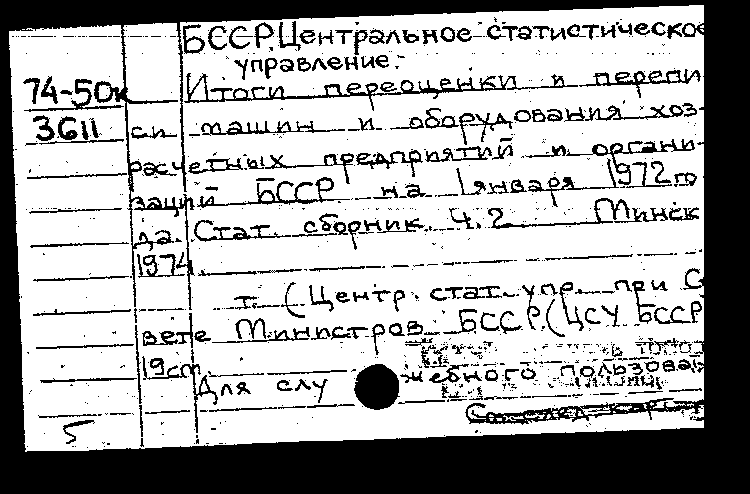 БССР. Центральное статистическое
управление.
74-50к Итоги переоценки и перепи-
3611 си машин и оборудования хоз-
расчетных предприятий и органи-
заций БССР на 1 января 1972 го-
да. Стат. сборник. Ч.2 Минск
1974.
т. (Центр. стат. упр. при С
вете Министров БССР. (ЦСУ БССР
19см.
Для служебного пользова
См. след. карт
5